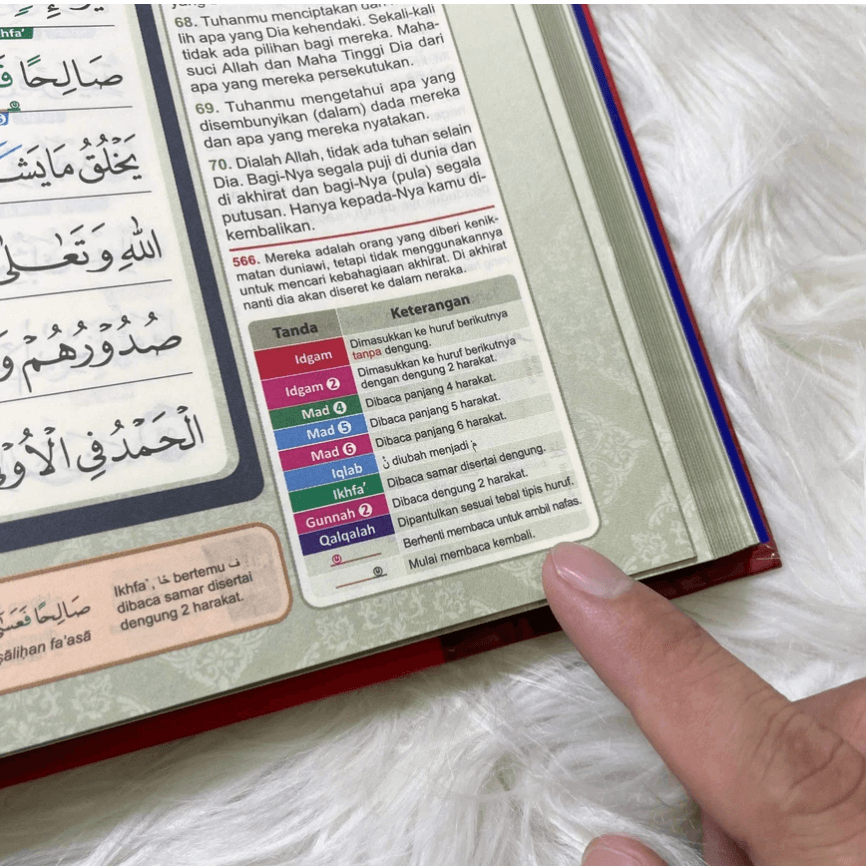 hfa'
صَالِحًا فَ
يَخْلُقُ مَا يَشَ
اللّٰهِ وَتَعٰلٰى
صُدُوْرُهُمْ وَ
الْحَمْدُ فِى الْاُوْلٰ
68. Tuhanmu menciptakan dan
lih apa yang Dia kehendaki. Sekali-kali
tidak ada pilihan bagi mereka. Maha-
suci Allah dan Maha Tinggi Dia dari
apa yang mereka persekutukan.
69. Tuhanmu mengetahui apa yang
disembunyikan (dalam) dada mereka
dan apa yang mereka nyatakan.
70. Dialah Allah, tidak ada tuhan selain
Dia. Bagi-Nya segala puji di dunia dan
di akhirat dan bagi-Nya (pula) segala
putusan. Hanya kepada-Nya kamu di-
kembalikan.
566. Mereka adalah orang yang diberi kenik-
matan duniawi, tetapi tidak menggunakannya
untuk mencari kebahagiaan akhirat. Di akhirat
nanti dia akan diseret ke dalam neraka.
Tanda Keterangan
Idgam Dimasukkan ke huruf berikutnya
tanpa dengung.
Idgam 2 Dimasukkan ke huruf berikutnya
dengan dengung 2 harakat.
Mad 4 Dibaca panjang 4 harakat.
Mad 5 Dibaca panjang 5 harakat.
Mad 6 Dibaca panjang 6 harakat.
Iqlab نْ diubah menjadi مْ
Ikhfa' Dibaca samar disertai dengung.
Gunnah 2 Dibaca dengung 2 harakat.
Qalqalah Dipantulkan sesuai tebal tipis huruf.
Berhenti membaca untuk ambil nafas.
Mulai membaca kembali.
صَالِحًا فَعَسٰٓ
ṣāliḥan fa'asā
Ikhfa', حًا bertemu ف
dibaca samar disertai
dengung 2 harakat.